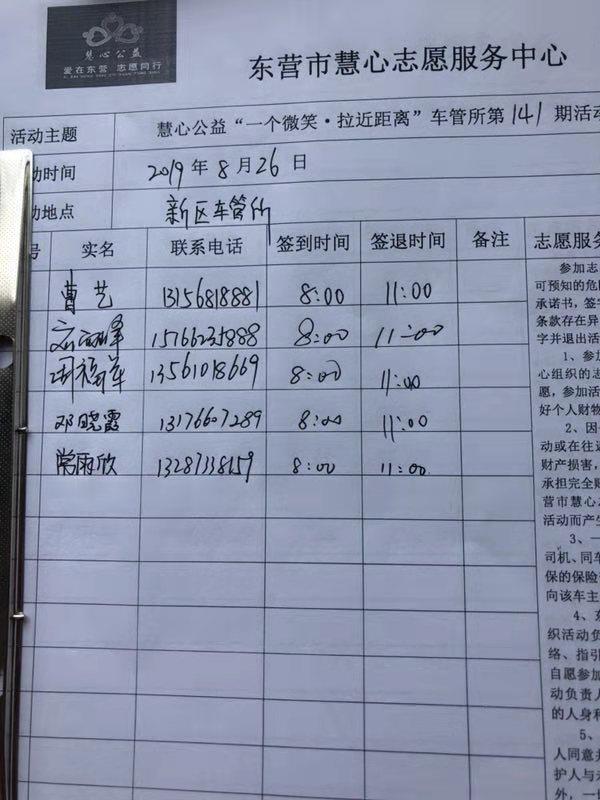 慧心公益
爱在东营 志愿同行
东营市慧心志愿服务中心
活动主题 慧心公益“一个微笑·拉近距离”车管所第141期活动
动时间 2019年8月26日
动地点 新区车管所
号 实名 联系电话 签到时间 签退时间 备注 志愿服务
曹艺 13156818881 8:00 11:00
8:00 11:00
13561018669 8:00 11:00
邓晓霞 13176607289 8:00 11:00
常雨欣 13287338159 8:00 11:00
参加志
可预知的危
承诺书，签字
条款存在异
字并退出活
1、参加
心组织的志
愿，参加活
好个人财物
2、因
动或在往返
财产损害，
承担完全赔
营市慧心志
活动而产生
3、一
司机、同车
保的保险
向该车主
4、东
织活动负
络、指引
自愿参加
动负责人
的人身和
5、
人同意并
护人与未
外，一切